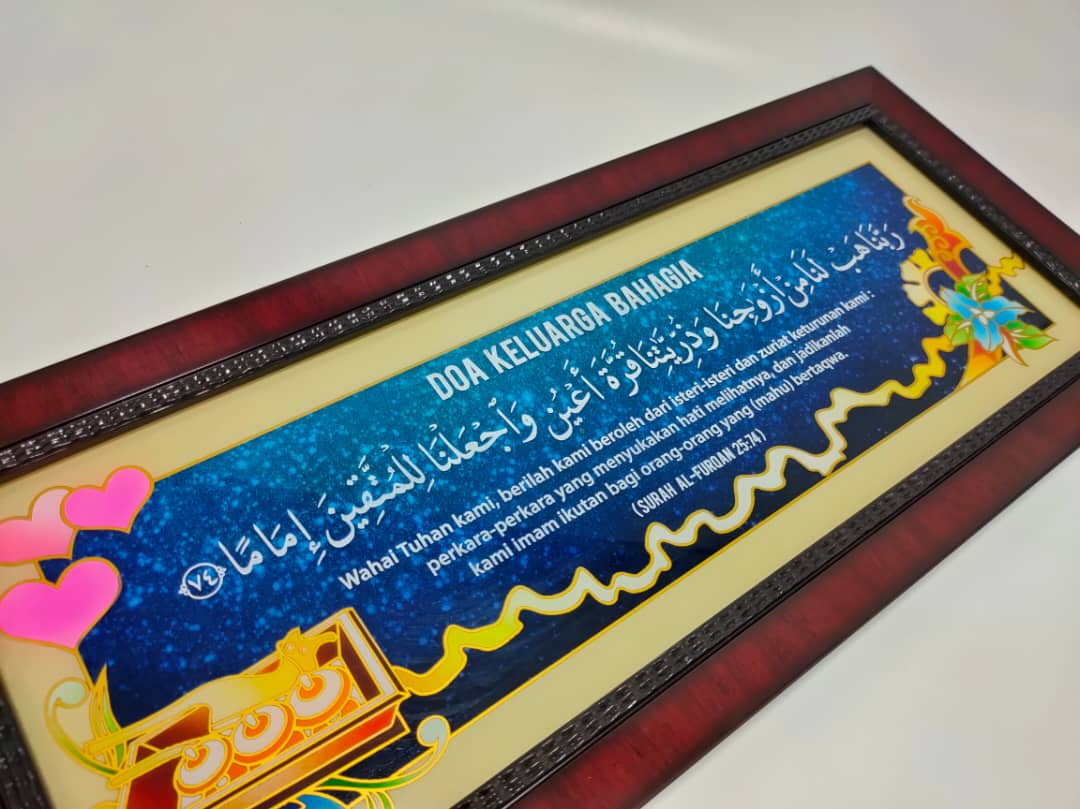 DOA KELUARGA BAHAGIA
رَبَّنَا هَبْ لَنَا مِنْ أَزْوَٰجِنَا وَذُرِّيَّٰتِنَا قُرَّةَ أَعْيُنٍ وَٱجْعَلْنَا لِلْمُتَّقِينَ إِمَامًا ٧٤
Wahai Tuhan kami, berilah kami beroleh dari isteri-isteri dan zuriat keturunan kami :
perkara-perkara yang menyukakan hati melihatnya, dan jadikanlah
kami imam ikutan bagi orang-orang yang (mahu) bertaqwa.
(SURAH AL-FURQAN 25:74)